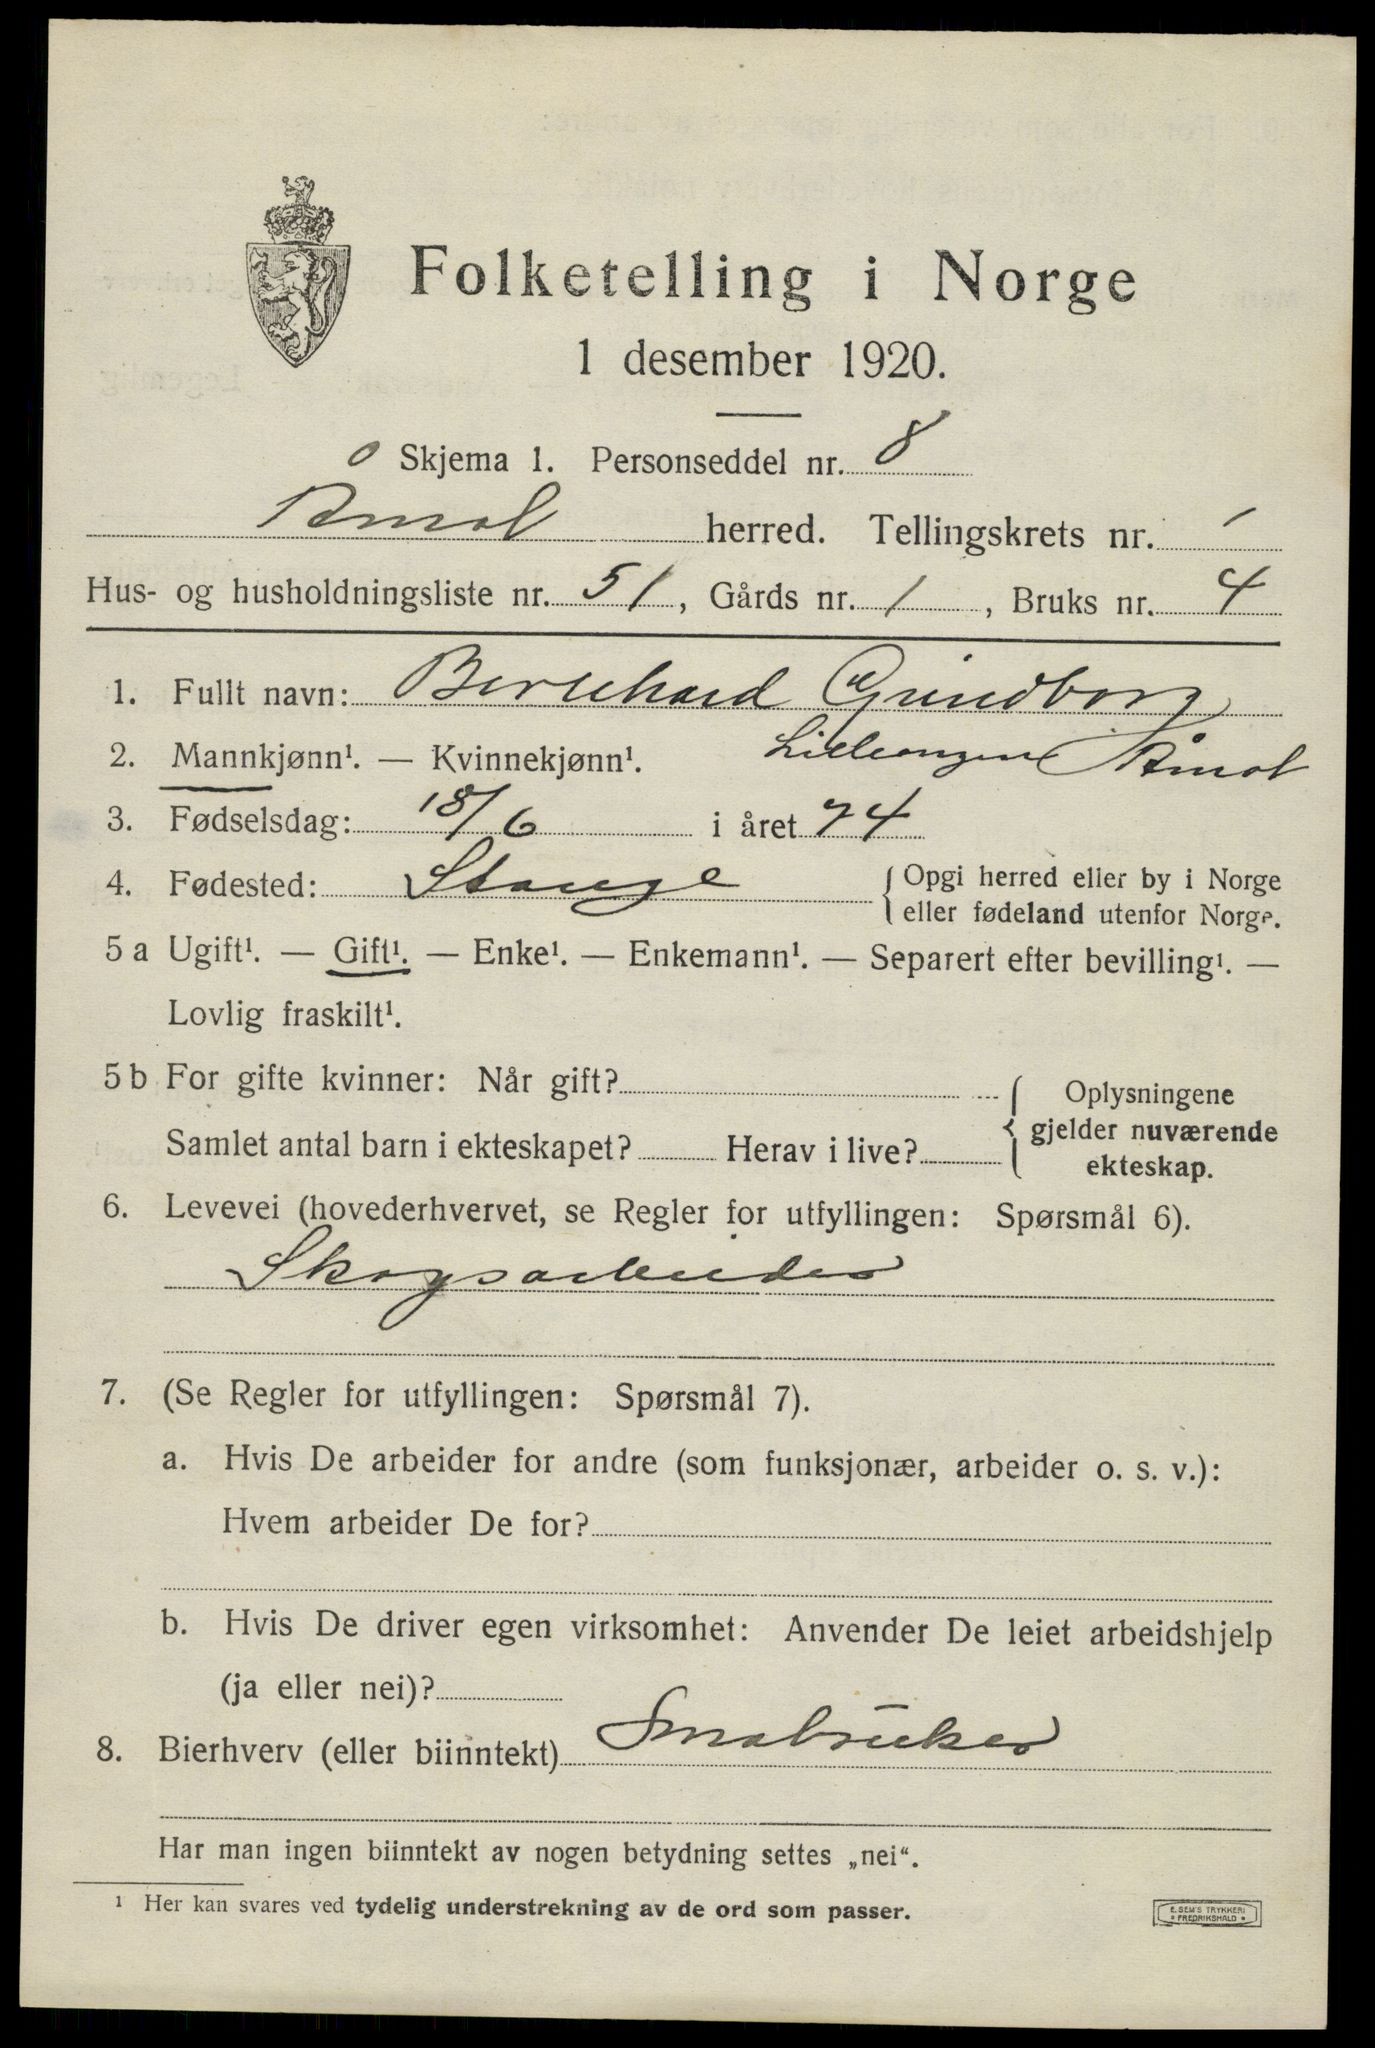 Folketelling i Norge
1 desember 1920.
Skjema 1. Personseddel nr. 8
Åmot herred. Tellingskrets nr. 1
Hus- og husholdningsliste nr. 51, Gårds nr. 1, Bruks nr. 4
1. Fullt navn: Bernhard Grindborg
2. Mannkjønn¹. — Kvinnekjønn¹. Åmot
3. Fødselsdag: 18/6 i året 74
4. Fødested: Stange { Opgi herred eller by i Norge
eller fødeland utenfor Norge.
5 a Ugift¹. — Gift¹. — Enke¹. — Enkemann¹. — Separert efter bevilling¹. —
Lovlig fraskilt¹.
5 b For gifte kvinner: Når gift? { Oplysningene
gjelder nuværende
Samlet antal barn i ekteskapet? Herav i live?
ekteskap.
6. Levevei (hovederhvervet, se Regler for utfyllingen: Spørsmål 6).
Skogsarbeider
7. (Se Regler for utfyllingen: Spørsmål 7).
a. Hvis De arbeider for andre (som funksjonær, arbeider o. s. v.):
Hvem arbeider De for?
b. Hvis De driver egen virksomhet: Anvender De leiet arbeidshjelp
(ja eller nei)?
8. Bierhverv (eller biinntekt) Småbruker
Har man ingen biinntekt av nogen betydning settes „nei“.
¹ Her kan svares ved tydelig understrekning av de ord som passer.
E. SEM'S TRYKKERI
* FREDRIKSHALD *